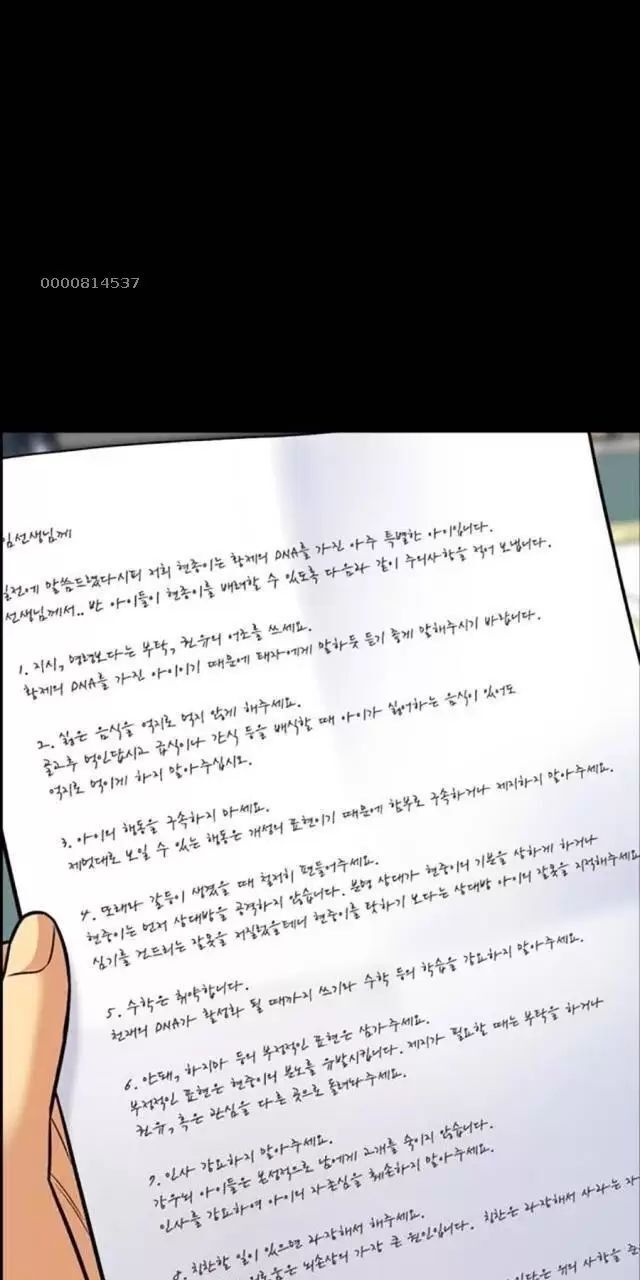 0000814537
임선생님께
일전에 말씀드렸다시피 저희 현종이는 황제의 DNA를 가진 아주 특별한 아이입니다.
선생님께서.. 반 아이들이 현종이를 배려할 수 있도록 다음과 같이 주의사항을 적어 보냅니다.
1. 지시, 명령보다는 부탁, 권유의 어조를 쓰세요.
황제의 DNA를 가진 아이이기 때문에 태자에게 말하듯 듣기 좋게 말해주시기 바랍니다.
2. 싫은 음식을 억지로 먹지 않게 해주세요.
골고루 먹인답시고 급식이나 간식 등을 배식할 때 아이가 싫어하는 음식이 있어도
억지로 먹이게 하지 말아주십시오.
3. 아이의 행동을 구속하지 마세요.
제멋대로 보일 수 있는 행동은 개성의 표현이기 때문에 함부로 구속하거나 제지하지 말아주세요.
4. 또래와 갈등이 생겼을 때 철저히 편들어주세요.
현종이는 먼저 상대방을 공격하지 않습니다. 분명 상대가 현종이의 기분을 상하게 하거나
심기를 건드리는 잘못을 저질렀을테니 현종이를 탓하기 보다는 상대방 아이의 잘못을 지적해주세요
5. 수학은 취약합니다.
천재의 DNA가 활성화 될 때까지 쓰기와 수학 등의 학습을 강요하지 말아주세요.
6. 안돼, 하지마 등의 부정적인 표현은 삼가주세요.
부정적인 표현은 현종이의 분노를 유발시킵니다. 제지가 필요할 때는 부탁을 하거나
권유, 혹은 관심을 다른 곳으로 돌려놔주세요.
7. 인사 강요하지 말아주세요.
강우뇌 아이들은 본성적으로 남에게 고개를 숙이지 않습니다.
인사를 강요하여 아이의 자존심을 훼손하지 말아주세요.
8. 칭찬할 일이 있으면 과장해서 해주세요.
로움은 뇌손상의 가장 큰 원인입니다. 칭찬은 과장해서 사과는 자
이다은 위의 사항을 준